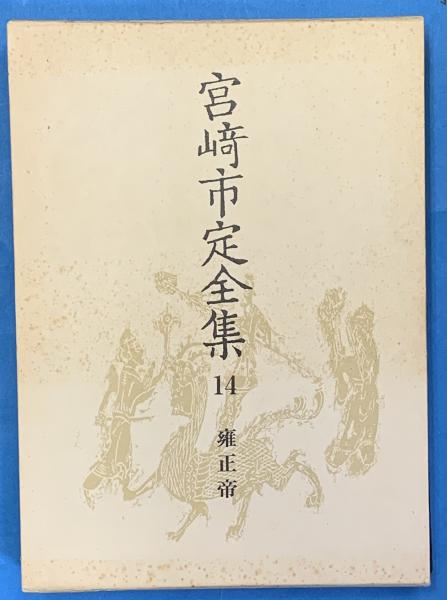 宮﨑市定全集
14
雍正帝